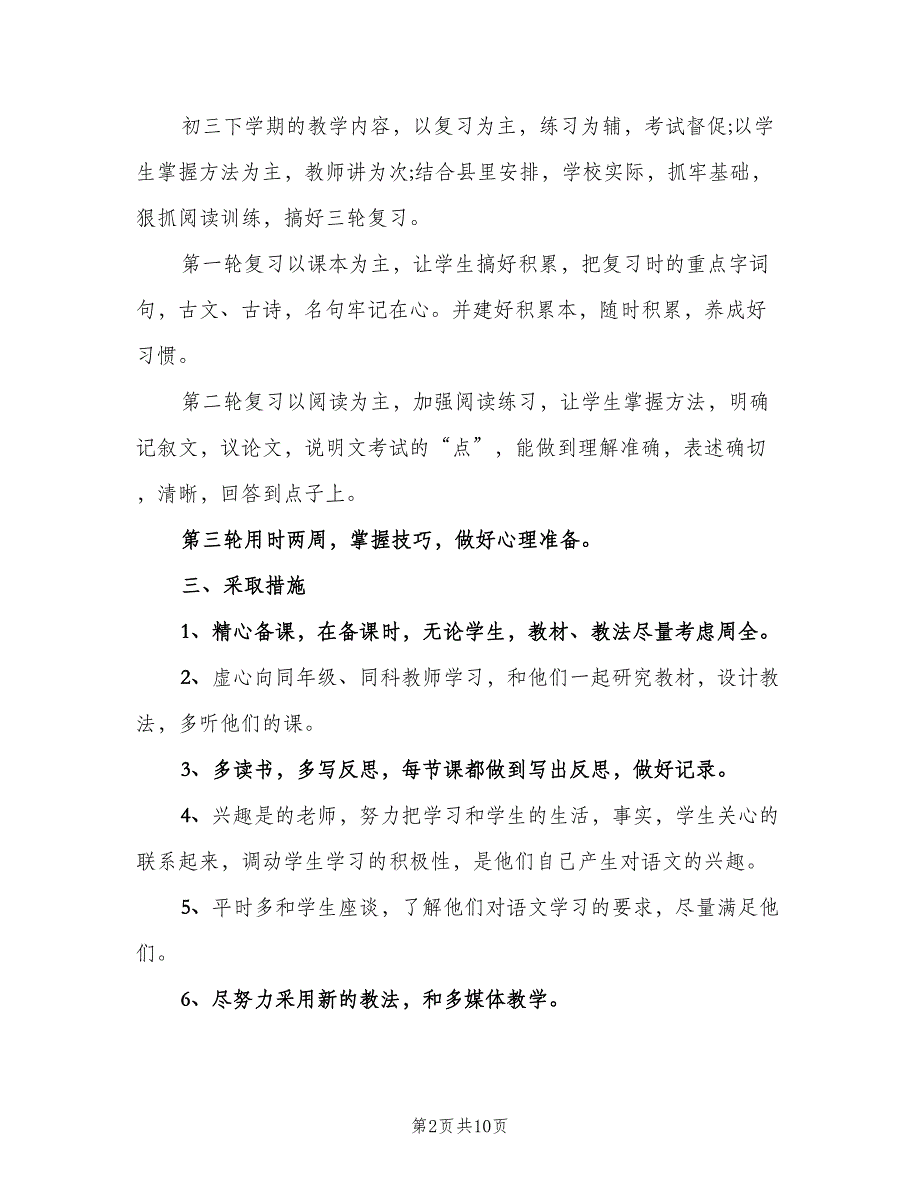 初三下学期的教学内容，以复习为主，练习为辅，考试督促;以学
生掌握方法为主，教师讲为次;结合县里安排，学校实际，抓牢基础，
狠抓阅读训练，搞好三轮复习。
第一轮复习以课本为主，让学生搞好积累，把复习时的重点字词
句，古文、古诗，名句牢记在心。并建好积累本，随时积累，养成好
习惯。
第二轮复习以阅读为主，加强阅读练习，让学生掌握方法，明确
记叙文，议论文，说明文考试的“点”，能做到理解准确，表述确切
，清晰，回答到点子上。
第三轮用时两周，掌握技巧，做好心理准备。
三、采取措施
1、精心备课，在备课时，无论学生，教材、教法尽量考虑周全。
2、虚心向同年级、同科教师学习，和他们一起研究教材，设计教
法，多听他们的课。
3、多读书，多写反思，每节课都做到写出反思，做好记录。
4、兴趣是的老师，努力把学习和学生的生活，事实，学生关心的
联系起来，调动学生学习的积极性，是他们自己产生对语文的兴趣。
5、平时多和学生座谈，了解他们对语文学习的要求，尽量满足他
们。
6、尽努力采用新的教法，和多媒体教学。
第2页共10页